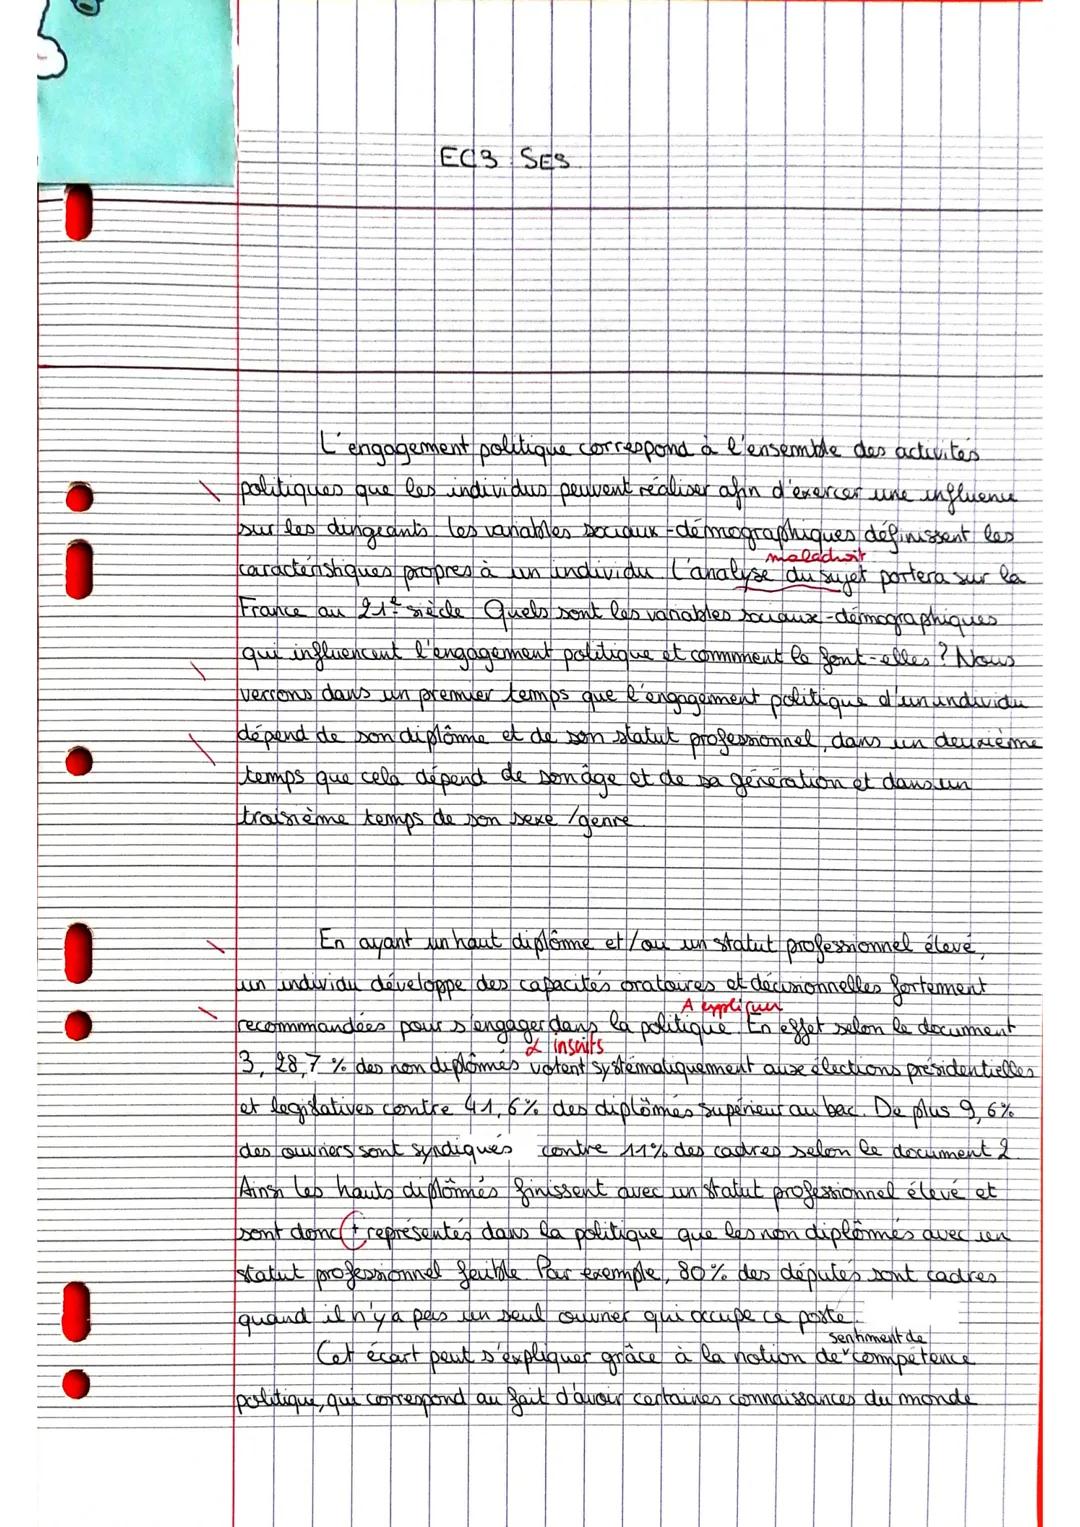 EC3 SES
L'engagement politique correspond à l'ensemble des activités
politiques que les individus peuvent réaliser afin d'exercer une influence
sur les dirigeants. Les variables sociaux-démographiques définissent les
maladroit
caractéristiques propres à un individu. L'analyse du sujet portera sur la
France au 21e siècle. Quels sont les variables sociaux-démographiques
qui influencent l'engagement politique et commment le font-elles ? Nous
verrons dans un premier temps que l'engagement politique d'un individu
dépend de son diplôme et de son statut professionnel, dans un deuxième
temps que cela dépend de son âge et de sa génération et dans un
troisième temps de son sexe /genre
En ayant un haut diplôme et/ou un statut professionnel élevé,
un individu développe des capacités oratoires et décisionnelles fortement
A expliquer
recommmandées pour s'engager dans la politique. En effet selon le document
inscrits
3, 28,7 % des non diplômés votent systématiquement aux élections présidentielles
et legislatives contre 41,6% des diplômés supérieur au bac. De plus 9,6%
des ouvriers sont syndiqués contre 11% des cadres selon le document 2
Ainsi les hauts diplômés finissent avec un statut professionnel élevé et
sont donc + représentés dans la politique que les non diplômés avec un
statut professionnel faible. Par exemple, 80% des députés sont cadres
quand il n'y a pas un seul ouvrier qui occupe ce poste.
sentiment de
Cet écart peut s'expliquer grâce à la notion de compétence
politique, qui correspond au fait d'avoir certaines connaissances du monde